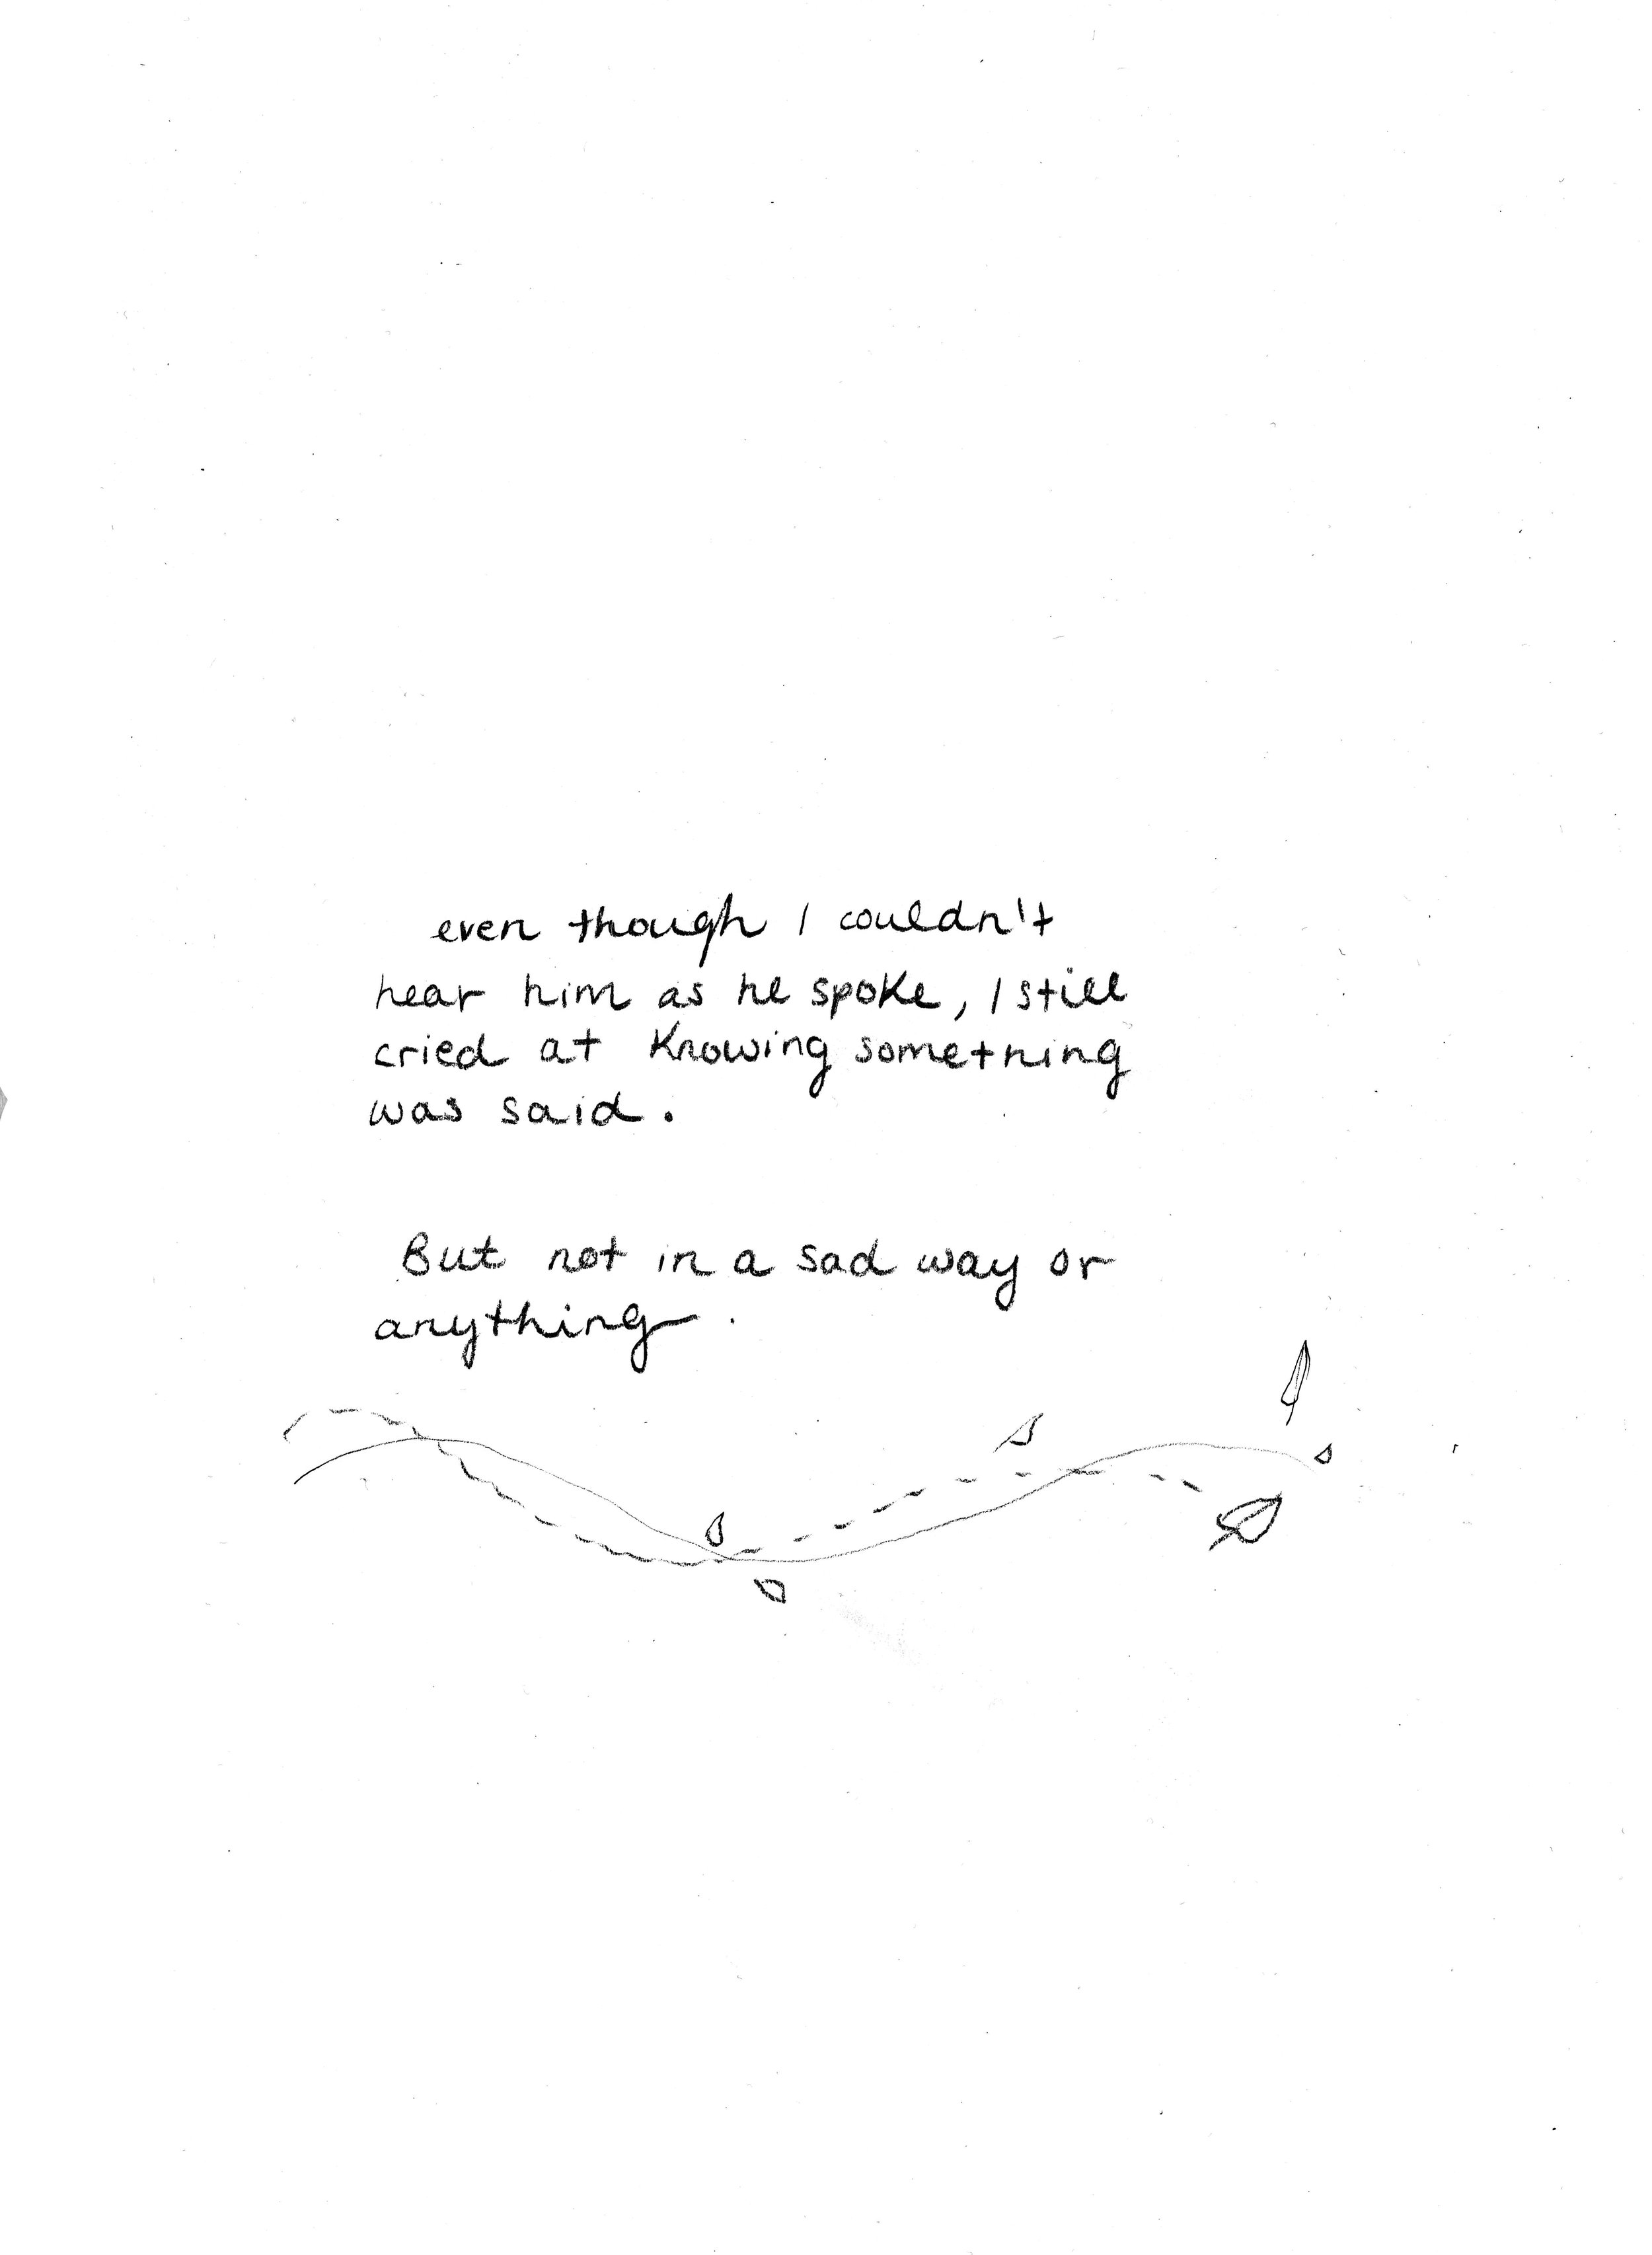 even though I couldn't
hear him as he spoke, I still
cried at knowing something
was said.
But not in a sad way or
anything.